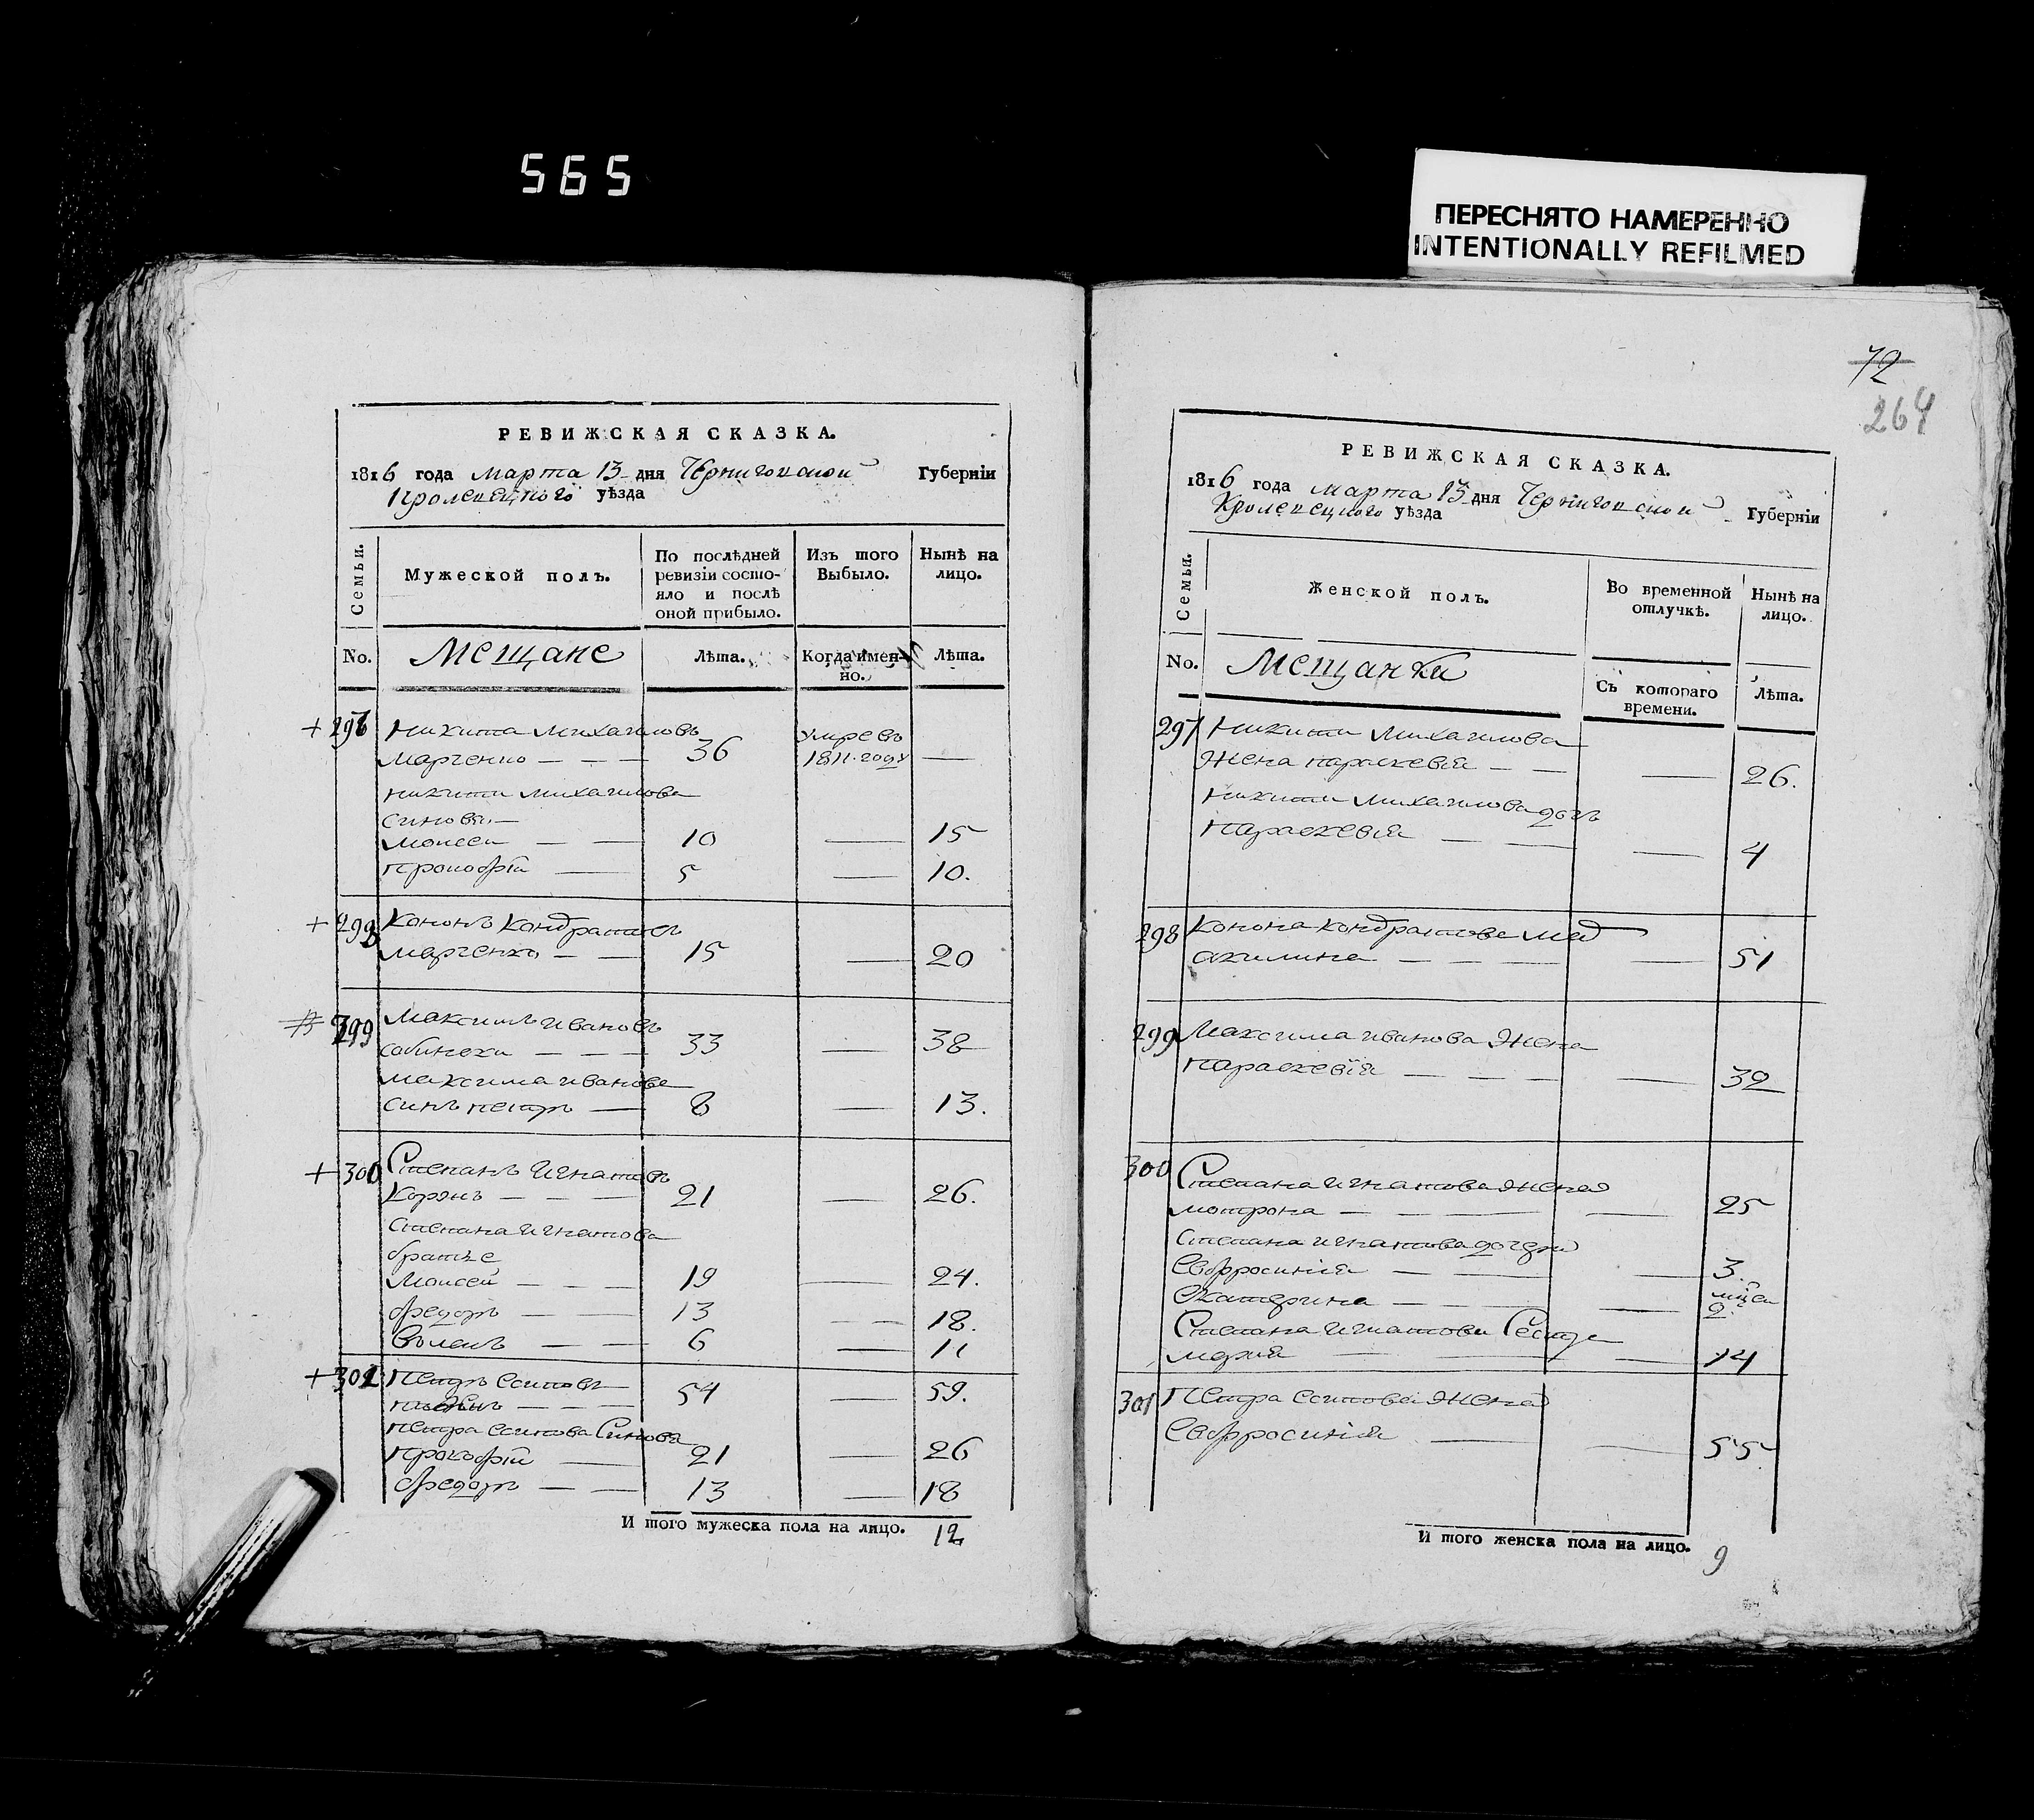 565
ПЕРЕСНЯТО НАМЕРЕННО
INTENTIONALLY REFILMED
РЕВИЖСКАЯ СКАЗКА.
1816 года Марта 13 дня Черниговской Губерніи
Кролевецкого уѣзда
Семьи.
Мужеской полъ.
По послѣдней ревизіи состояло и послѣ оной прибыло.
Изъ того Выбыло.
Нынѣ на лицо.
No.
Мещане
Лѣта.
Когда имен-
но.
Лѣта.
+ 297 Никита Михаиловъ умре въ
Марченко — — — 36 1811. году —
Никиты Михаилова
синовья
Моисей — — 10 — 15
Прокофій — 5 — 10.
+ 298 Кононъ Кондратіевъ
Марченко — — 15 — 20
299 Максимъ Ивановъ
— — — 33 — 38
Максима Иванова
синъ Петръ — 8 — 13.
+ 300 Степанъ Игнатовъ
— — — 21 — 26.
Степана Игнатова
братье
Моисей — — — 19 — 24.
Федоръ — — 13 — — 18.
— — 6 — 11
+ 301 Петръ
— — — 54 — 59.
Петра Синовья
Прокофій — 21 — 26
Федоръ — — 13 — 18
И того мужеска пола на лицо. 12
72
264
РЕВИЖСКАЯ СКАЗКА.
1816 года Марта 13 дня Черниговской Губерніи
Кролевецкого уѣзда
Семьи.
Женской полъ.
Во временной отлучкѣ.
Нынѣ на лицо.
No.
Мещанки
Съ котораго
времени.
Лѣта.
297 Никиты Михаилова
Жена Параскевія — — — 26.
Никиты Михаилова дочь
Параскевія — — — 4
298 Конона Кондратова мат
Акилина — — — — 51
299 Максима Иванова Жена
Параскевія — — — — 32
300 Степана Игнатова жена
Мотрона — — — — 25
Степана Игнатова дочери
Евфросинія — — — 3.
Екатерина — — — 2.
Степана Игнатова Сестра
Марія — — — 14
301 Петра жена
Евфросинія — — 55
И того женска пола на лицо. 9